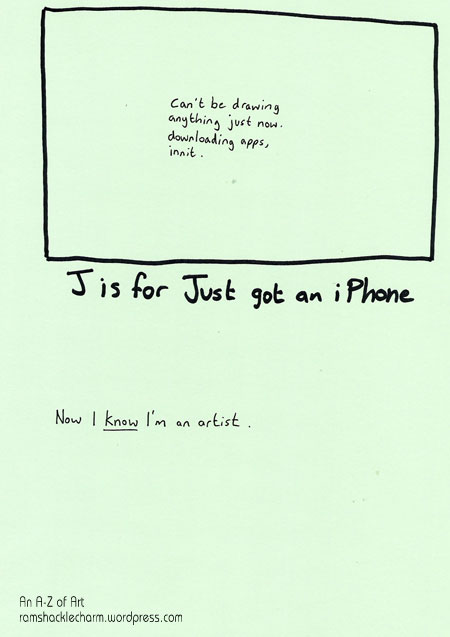 Can't be drawing
anything just now.
downloading apps,
innit.
J is for Just got an iPhone
Now I know I'm an artist.
An A-Z of Art
ramshacklecharm.wordpress.com